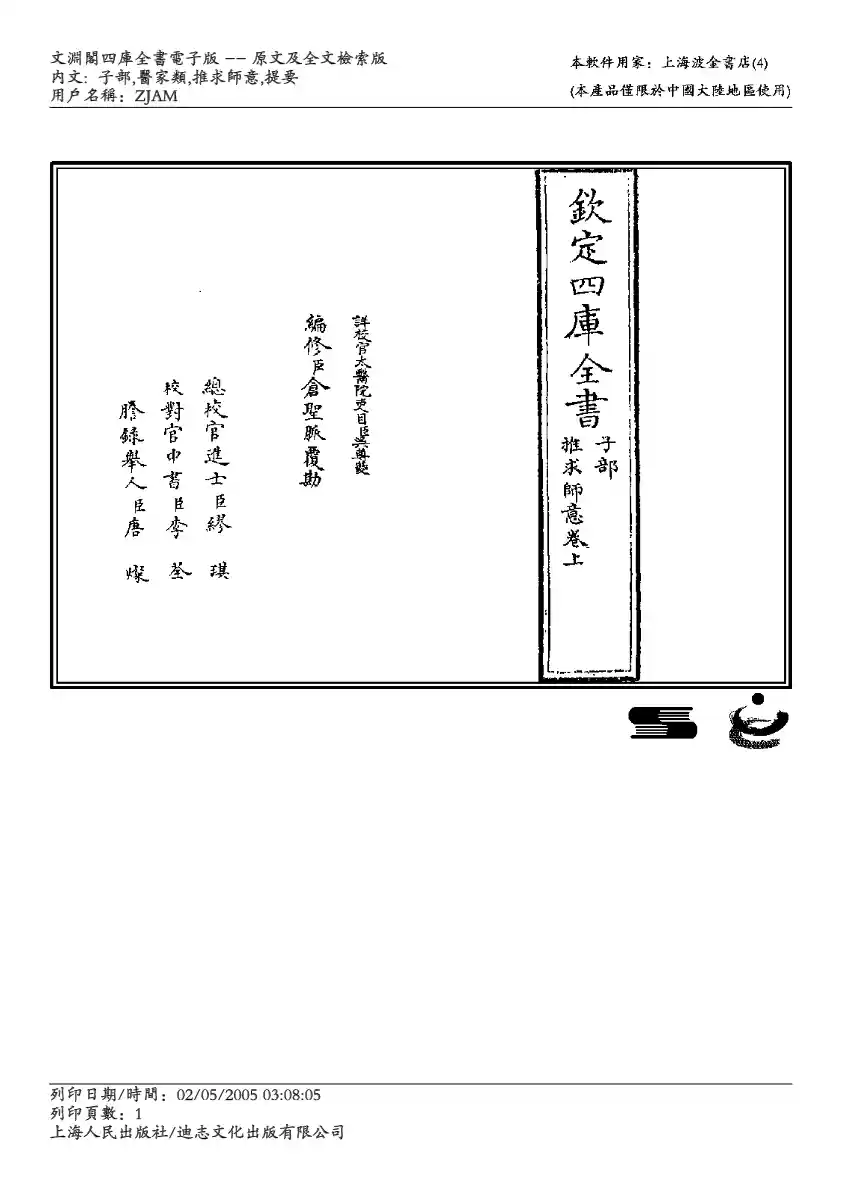 文淵閣四庫全書電子版 −− 原文及全文檢索版
内文: 子部,醫家類,推求師意,提要
用戶名稱: ZJAM
本軟件用家: 上海波金書店(4)
(本產品僅限於中國大陸地區使用)
欽定四庫全書
子部
推求師意卷上
詳校官太醫院吏目臣吳尊
編修臣倉聖脈覆勘
總校官進士臣繆 琪
校對官中書臣李 荃
謄錄舉人臣唐 燦
列印日期/時間: 02/05/2005 03:08:05
列印頁數: 1
上海人民出版社/迪志文化出版有限公司